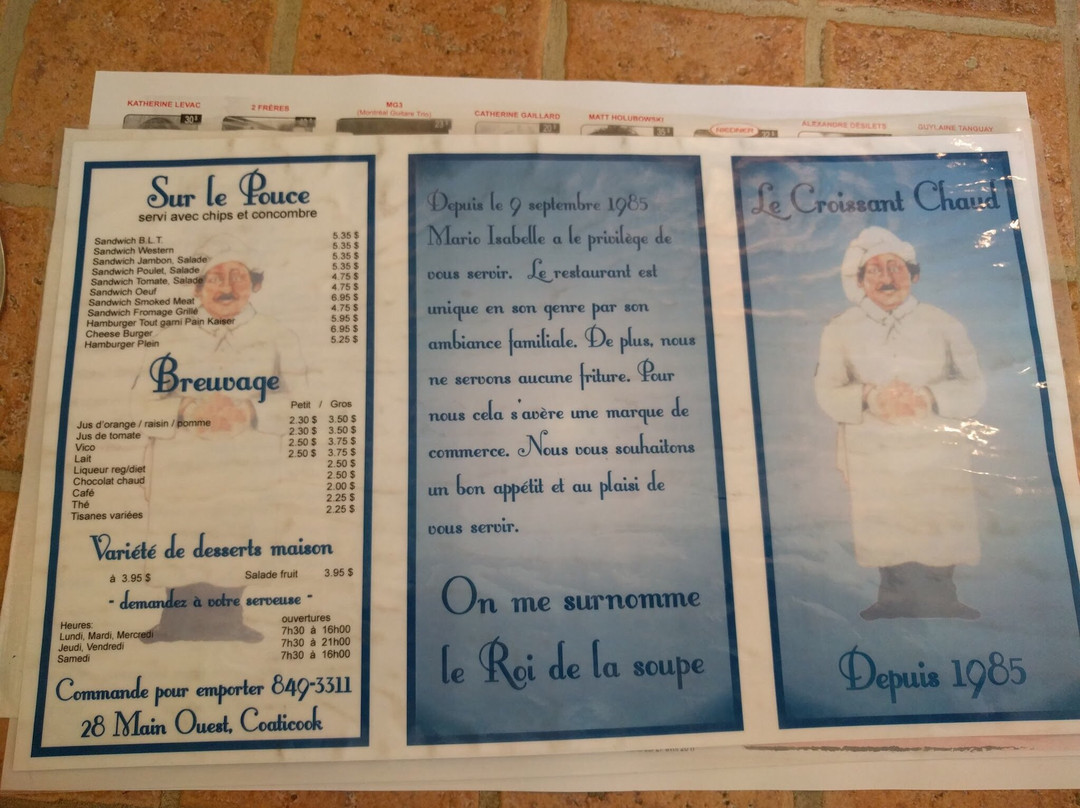 KATHERINE LEVAC
2 FRÈRES
MG3
(Montréal Guitare Trio)
CATHERINE GAILLARD
MATT HOLUBOWSKI
ALEXANDRE DÉSILETS
GUYLAINE TANGUAY
30 $
Sur le Pouce
servi avec chips et concombre
Sandwich B.L.T. 5.35 $
Sandwich Western 5.35 $
Sandwich Jambon, Salade 5.35 $
Sandwich Poulet, Salade 5.35 $
Sandwich Tomate, Salade 4.75 $
Sandwich Oeuf 4.75 $
Sandwich Smoked Meat 6.95 $
Sandwich Fromage Grillé 4.75 $
Hamburger Tout garni Pain Kaiser 5.95 $
Cheese Burger 6.95 $
Hamburger Plein 5.25 $
Breuvage
Petit / Gros
Jus d'orange / raisin / pomme 2.30 $ 3.50 $
Jus de tomate 2.30 $ 3.50 $
Vico 2.50 $ 3.75 $
Lait 2.50 $ 3.75 $
Liqueur reg/diet 2.50 $
Chocolat chaud 2.50 $
Café 2.00 $
Thé 2.25 $
Tisanes variées 2.25 $
Variété de desserts maison
à 3.95 $ Salade fruit 3.95 $
- demandez à votre serveuse -
Heures: ouvertures
Lundi, Mardi, Mercredi 7h30 à 16h00
Jeudi, Vendredi 7h30 à 21h00
Samedi 7h30 à 16h00
Commande pour emporter 849-3311
28 Main Ouest, Coaticook
Depuis le 9 septembre 1985
Mario Isabelle a le privilège de
vous servir. Le restaurant est
unique en son genre par son
ambiance familiale. De plus, nous
ne servons aucune friture. Pour
nous cela s'avère une marque de
commerce. Nous vous souhaitons
un bon appétit et au plaisi de
vous servir.
On me surnomme
le Roi de la soupe
Le Croissant Chaud
Depuis 1985